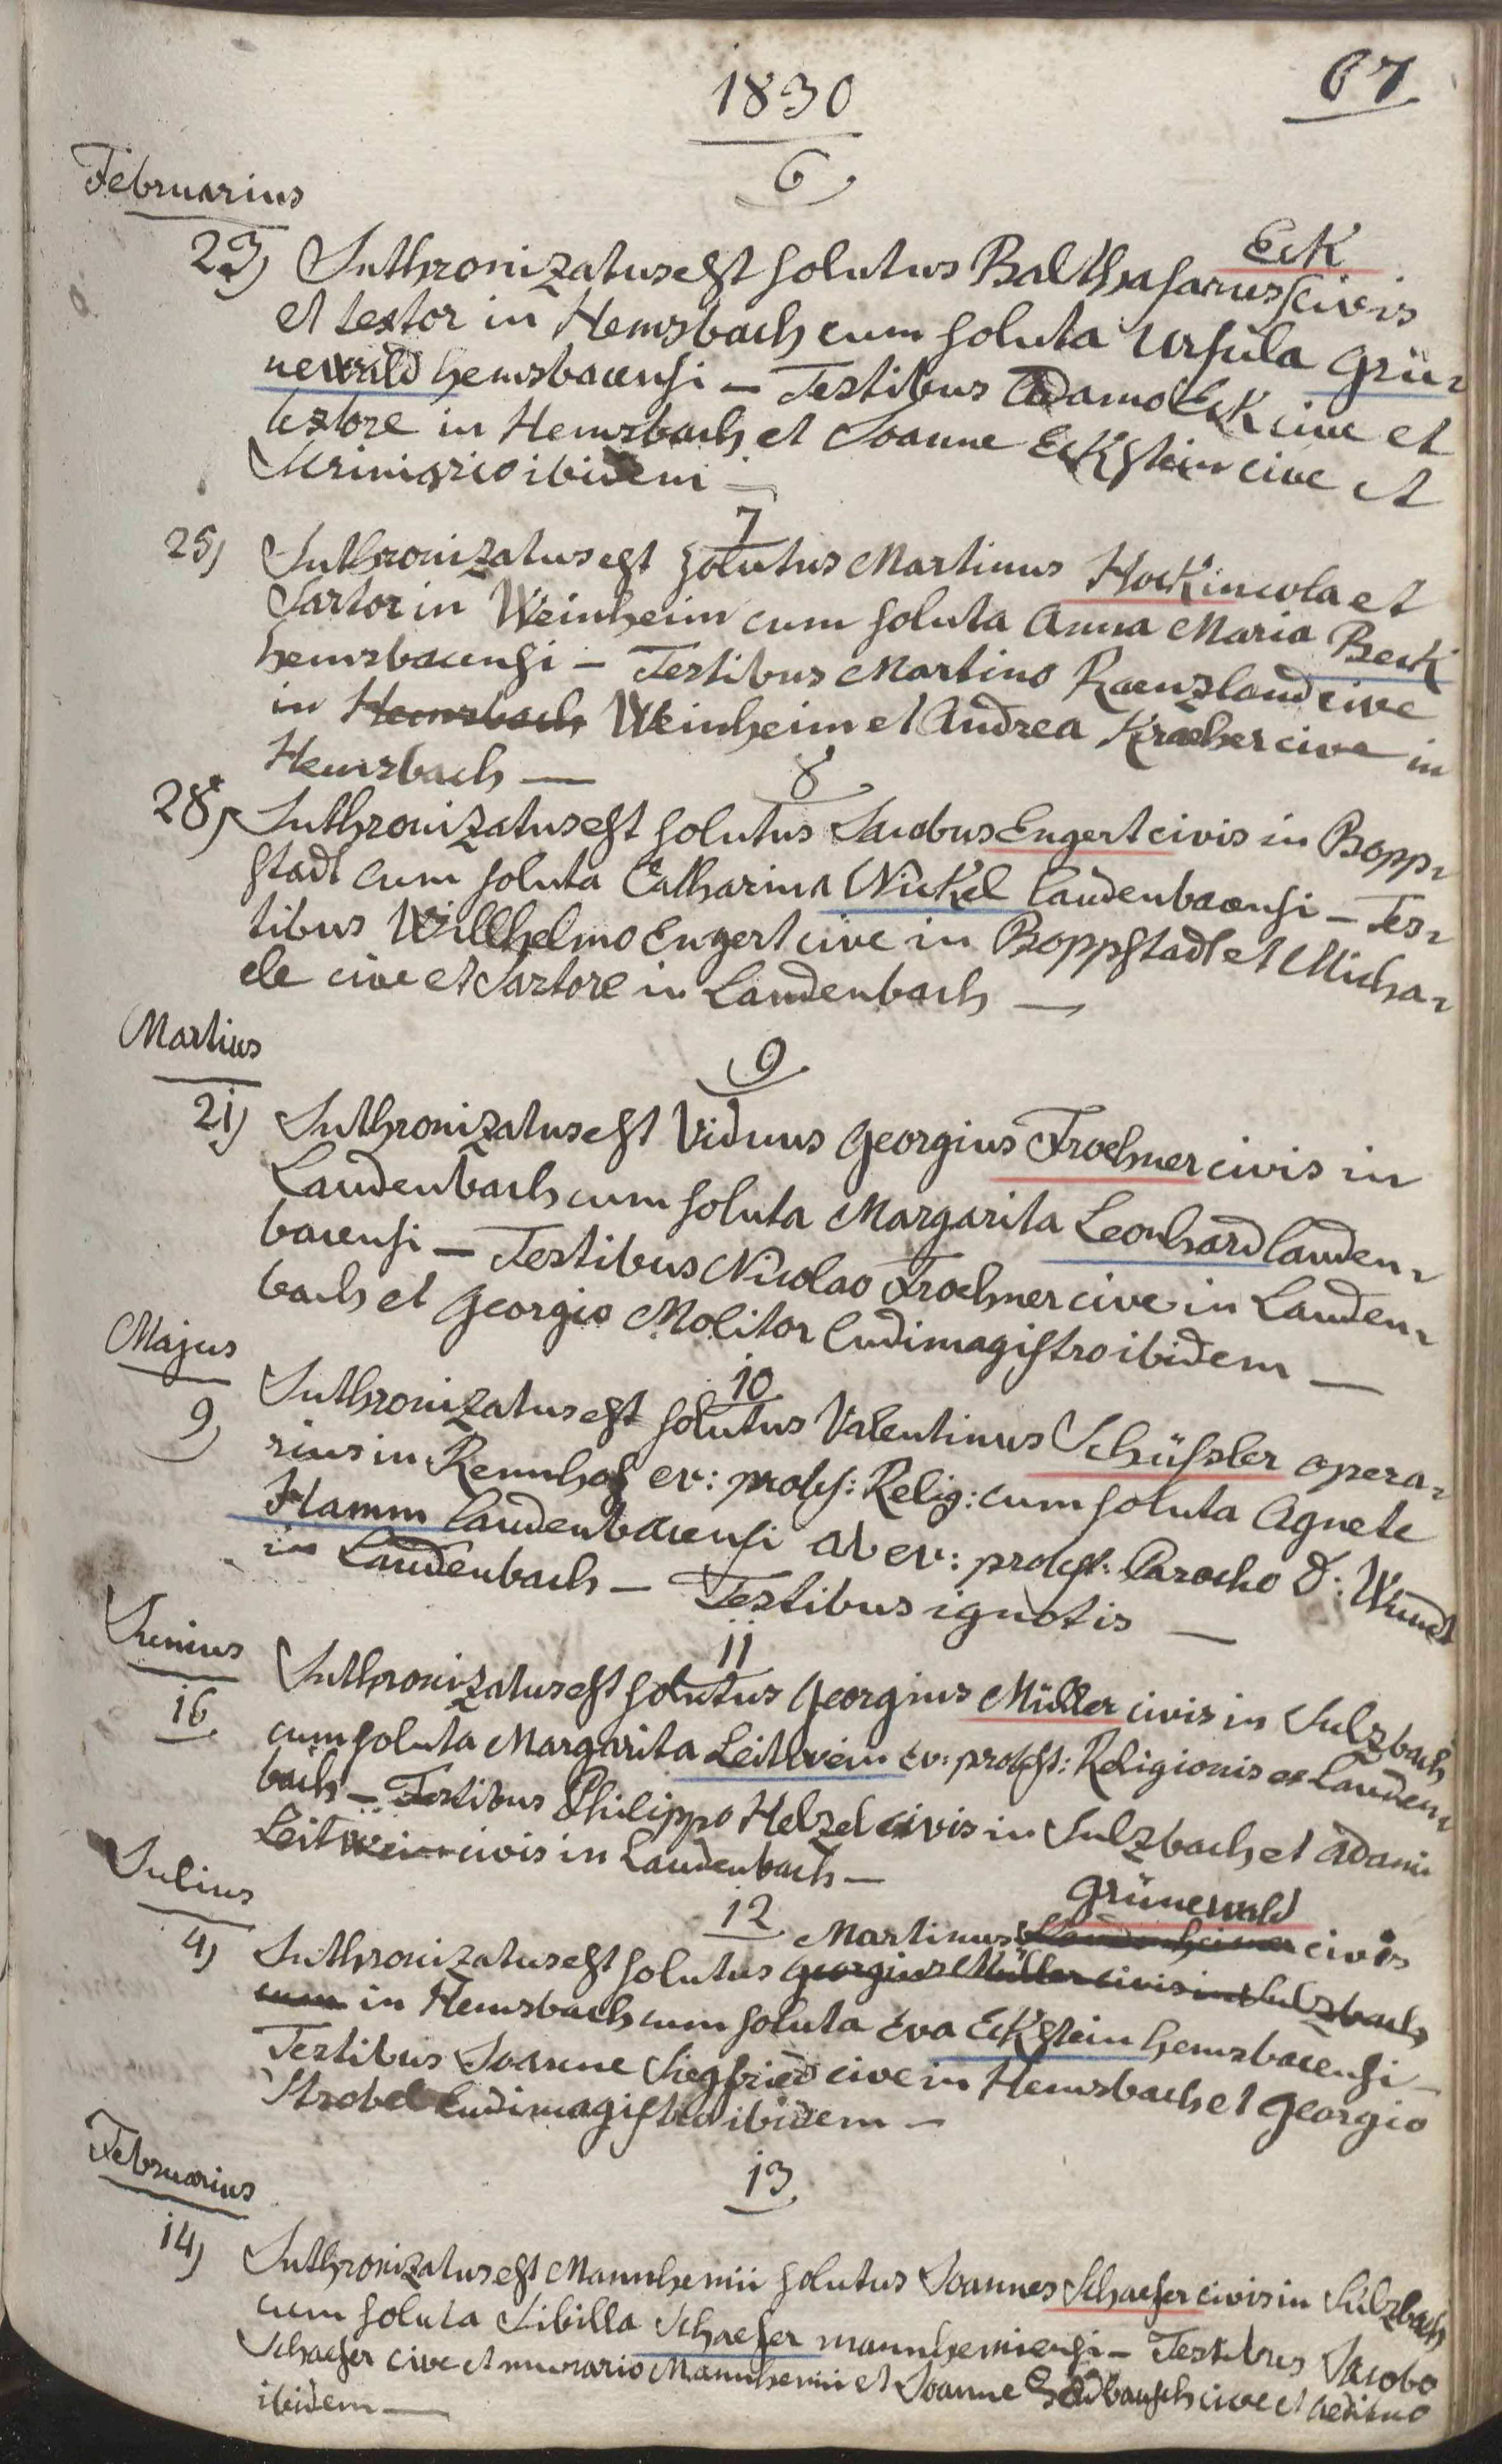 67
1830
6
Februarius
Eck
23) Inthronizatus est solutus Balthasarus civis
et textor in Hemsbach cum soluta Ursula Grü-
newald hemsbacensi – Testibus Adamo Eck cive et
textore in Hemsbach et Joanne Eckstein cive et
Scriniario ibidem –
7
25) Inthronizatus est solutus Martinus Hock incola et
Sartor in Weinheim cum soluta Anna Maria Beck
hemsbacensi – Testibus Martino Raenzland cive
in Hemsbach Weinheim et Andrea Kraeher cive in
Hemsbach —
8
28) Inthronizatus est solutus Jacobus Engert civis in Bopp-
stadt cum soluta Catharina Nickel laudenbacensi – Tes-
tibus Willhelmo Engert cive in Boppstadt et Micha-
ele cive et Sartore in Laudenbach —
Martius
9
21) Inthronizatus est Viduus Georgius Froehner civis in
Laudenbach cum soluta Margarita Leonhard lauden-
bacensi – Testibus Nicolao Froehner cive in Lauden-
bach et Georgio Molitor ludimagistro ibidem —
Majus
10
9) Inthronizatus est solutus Valentinus Schüssler opera-
rius in Rennhof ev: prot: Relig: cum soluta Agnete
Hamm laudenbacensi ab ev: protest: Parocho D: Wundt
in Laudenbach – Testibus ignotis —
Junius
11
16 Inthronizatus est solutus Georgius Müller civis in Sulzbach
cum soluta Margarita Leitwein ev: protest: Religionis ex Lauden-
bach – Testibus Philippo Helzel civis in Sulzbach et Adami
Leitwein civis in Laudenbach –
Julius
12
Grünewald
Martinus civis
4) Inthronizatus est solutus Georgius Müller civis in Sulzbach
cum in Hemsbach cum soluta Eva Eckstein hemsbacensi –
Testibus Joanne Siegfried cive in Hemsbach et Georgio
Strobel ludimagistro ibidem –
Februarius
13
14) Inthronizatus est Mannhemii solutus Joannes Schaefer civis in Sulzbach
cum soluta Sibilla Schaefer mannhemiensi – Testibus Jacobo
Schaefer cive et murario Mannhemii et Joanne cive et aedituo
ibidem —